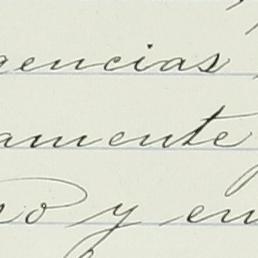 gencias
amente
so y en